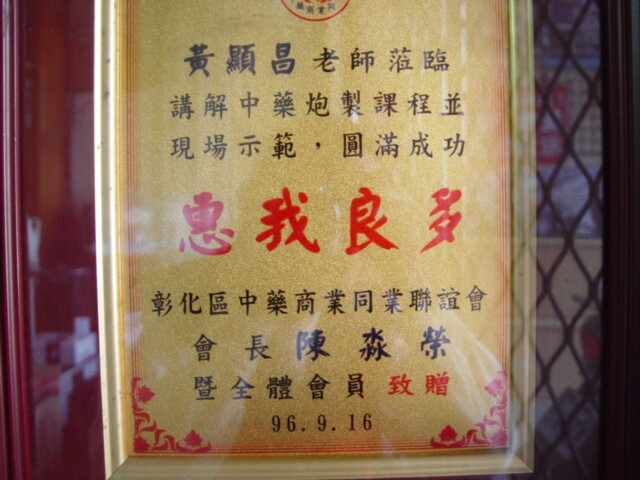 黃顯昌老師蒞臨
講解中藥炮製課程並
現場示範，圓滿成功
惠我良多
彰化區中藥商業同業聯誼會
會長陳淼榮
暨全體會員致贈
96.9.16